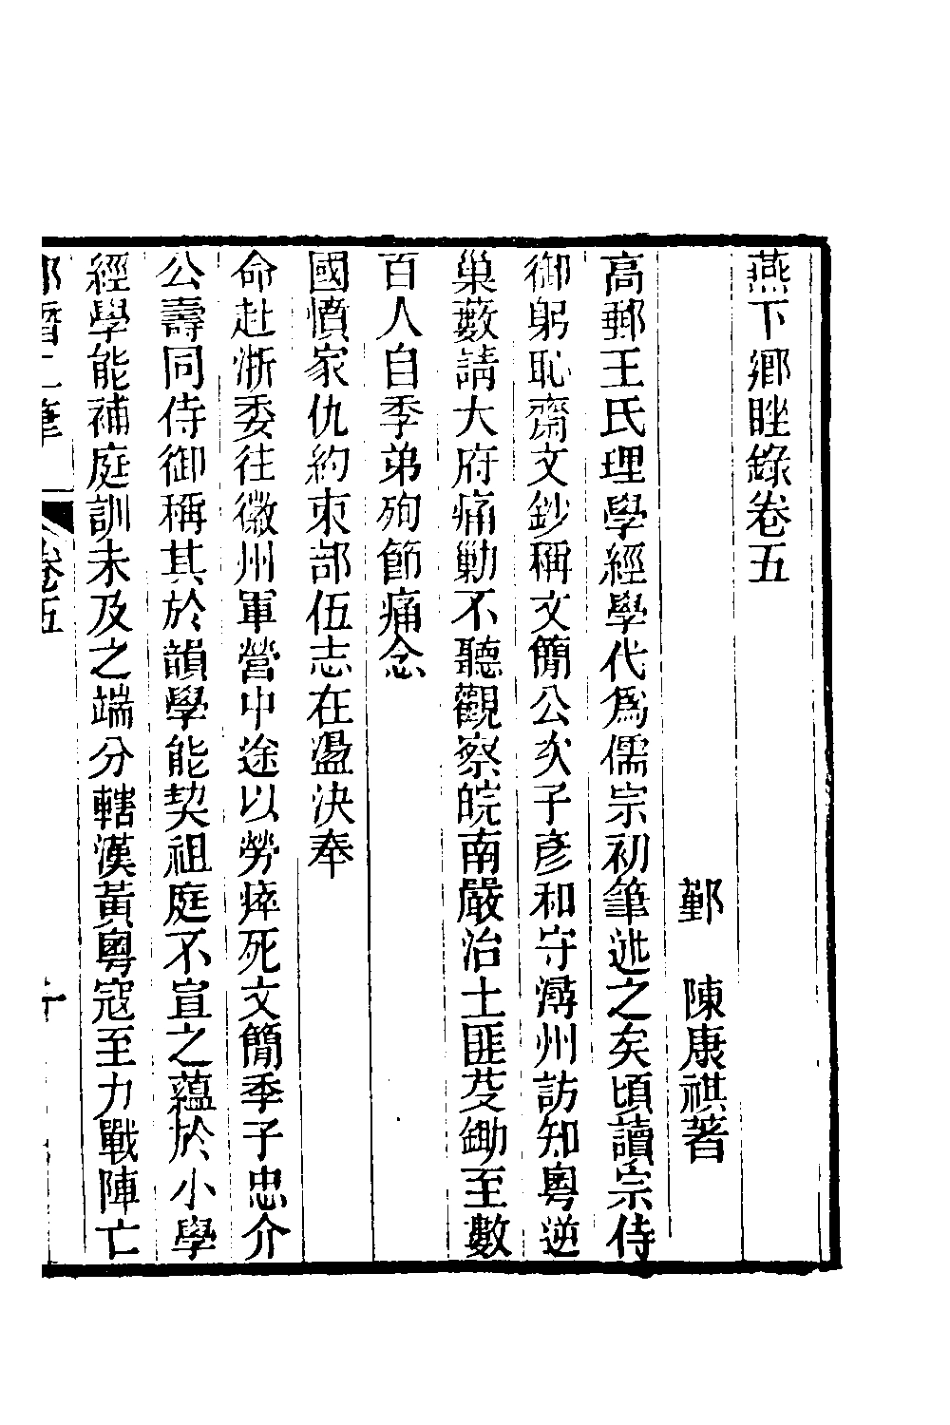 燕下鄉脞錄卷五
鄞　陳康祺著
高郵王氏理學經學代爲儒宗初筆述之矣頃讀宗侍
御躬恥齋文鈔稱文簡公次子彥和守潯州訪知粵逆
巢藪請大府痛勦不聽觀察皖南嚴治土匪芟鋤至數
百人自季弟殉節痛念
國憤家仇約束部伍志在盪決奉
命赴浙委往徽州軍營中途以勞瘁死文簡季子忠介
公壽同侍御稱其於韻學能契祖庭不宣之蘊於小學
經學能補庭訓未及之端分轄漢黃粵寇至力戰陣亡
郎潛二筆　卷五